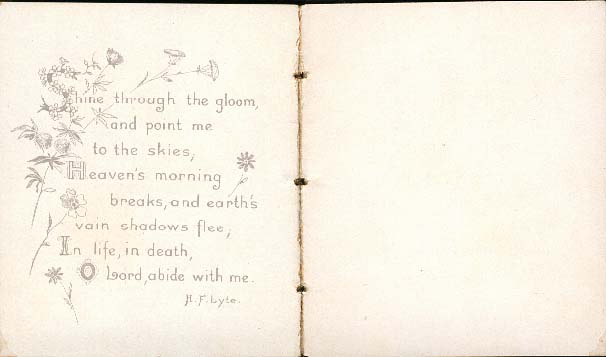 Shine through the gloom,
and point me
to the skies;
Heaven's morning
breaks, and earth's
vain shadows flee;
In life, in death,
O Lord, abide with me.
H. F. Lyte.